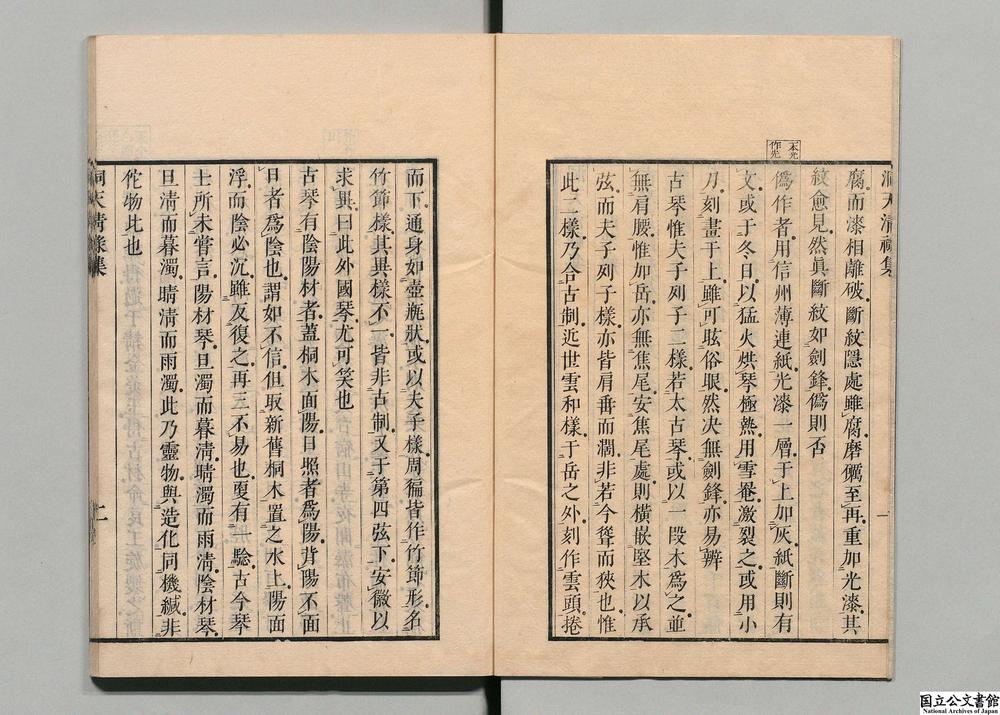 洞天清祿集
腐而漆相離破斷紋隱處雖腐磨礪至再重加光漆其
紋愈見然眞斷紋如劍鋒僞則否
僞作者用信州薄連紙光漆一層于上加灰紙斷則有
文或于冬日以猛火烘琴極熱用雪罨激裂之或用小
刀刻畫于上雖可眩俗眼然决無劍鋒亦易辨
古琴惟夫子列子二樣若太古琴或以一段木爲之並
無肩腰惟加岳亦無焦尾安焦尾處則橫嵌堅木以承
弦而夫子列子樣亦皆肩垂而濶非若今聳而狹也惟
此二樣乃合古制近世雲和樣于岳之外刻作雲頭捲
一
而下通身如壺瓶狀或以夫子樣周徧皆作竹節形名
竹節樣其異樣不一皆非古制又于第四弦下安徽以
求異曰此外國琴尤可笑也
古琴有陰陽材者蓋桐木面陽日照者爲陽背陽不面
日者爲陰也謂如不信但取新舊桐木置之水上陽面
浮而陰必沉雖反復之再三不易也更有一驗古今琴
士所未嘗言陽材琴旦濁而暮淸晴濁而雨淸陰材琴
旦淸而暮濁晴淸而雨濁此乃靈物與造化同機緘非
佗物比也
洞天淸祿集
二
国立公文書館
National Archives of Japan